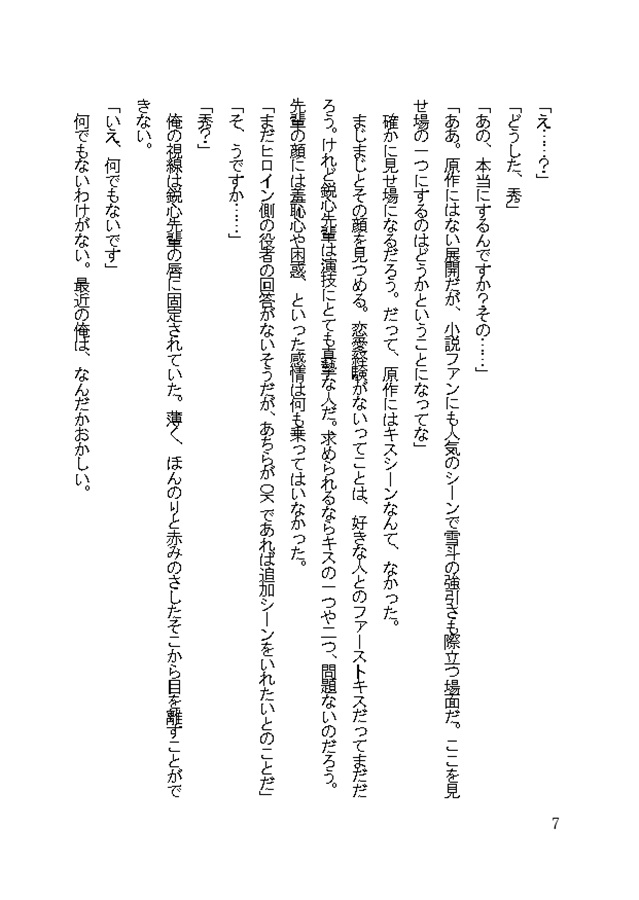 「え……？」
「どうした、秀」
「あの、本当にするんですか？その……」
「ああ。原作にはない展開だが、小説ファンにも人気のシーンで雪斗の強引さも際立つ場面だ。ここを見
せ場の一つにするのはどうかということになってな」
確かに見せ場になるだろう。だって、原作にはキスシーンなんて、なかった。
まじまじとその顔を見つめる。恋愛経験がないってことは、好きな人とのファーストキスだってまだだ
ろう。けれど鋭心先輩は演技にとても真摯な人だ。求められるならキスの一つや二つ、問題ないのだろう。
先輩の顔には羞恥心や困惑、といった感情は何も乗ってはいなかった。
「まだヒロイン側の役者の回答がないそうだが、あちらがOKであれば追加シーンをいれたいとのことだ」
「そ、うですか……」
「秀？」
俺の視線は鋭心先輩の唇に固定されていた。薄く、ほんのりと赤みのさしたそこから目を離すことがで
きない。
「いえ、何でもないです」
何でもないわけがない。最近の俺は、なんだかおかしい。
7